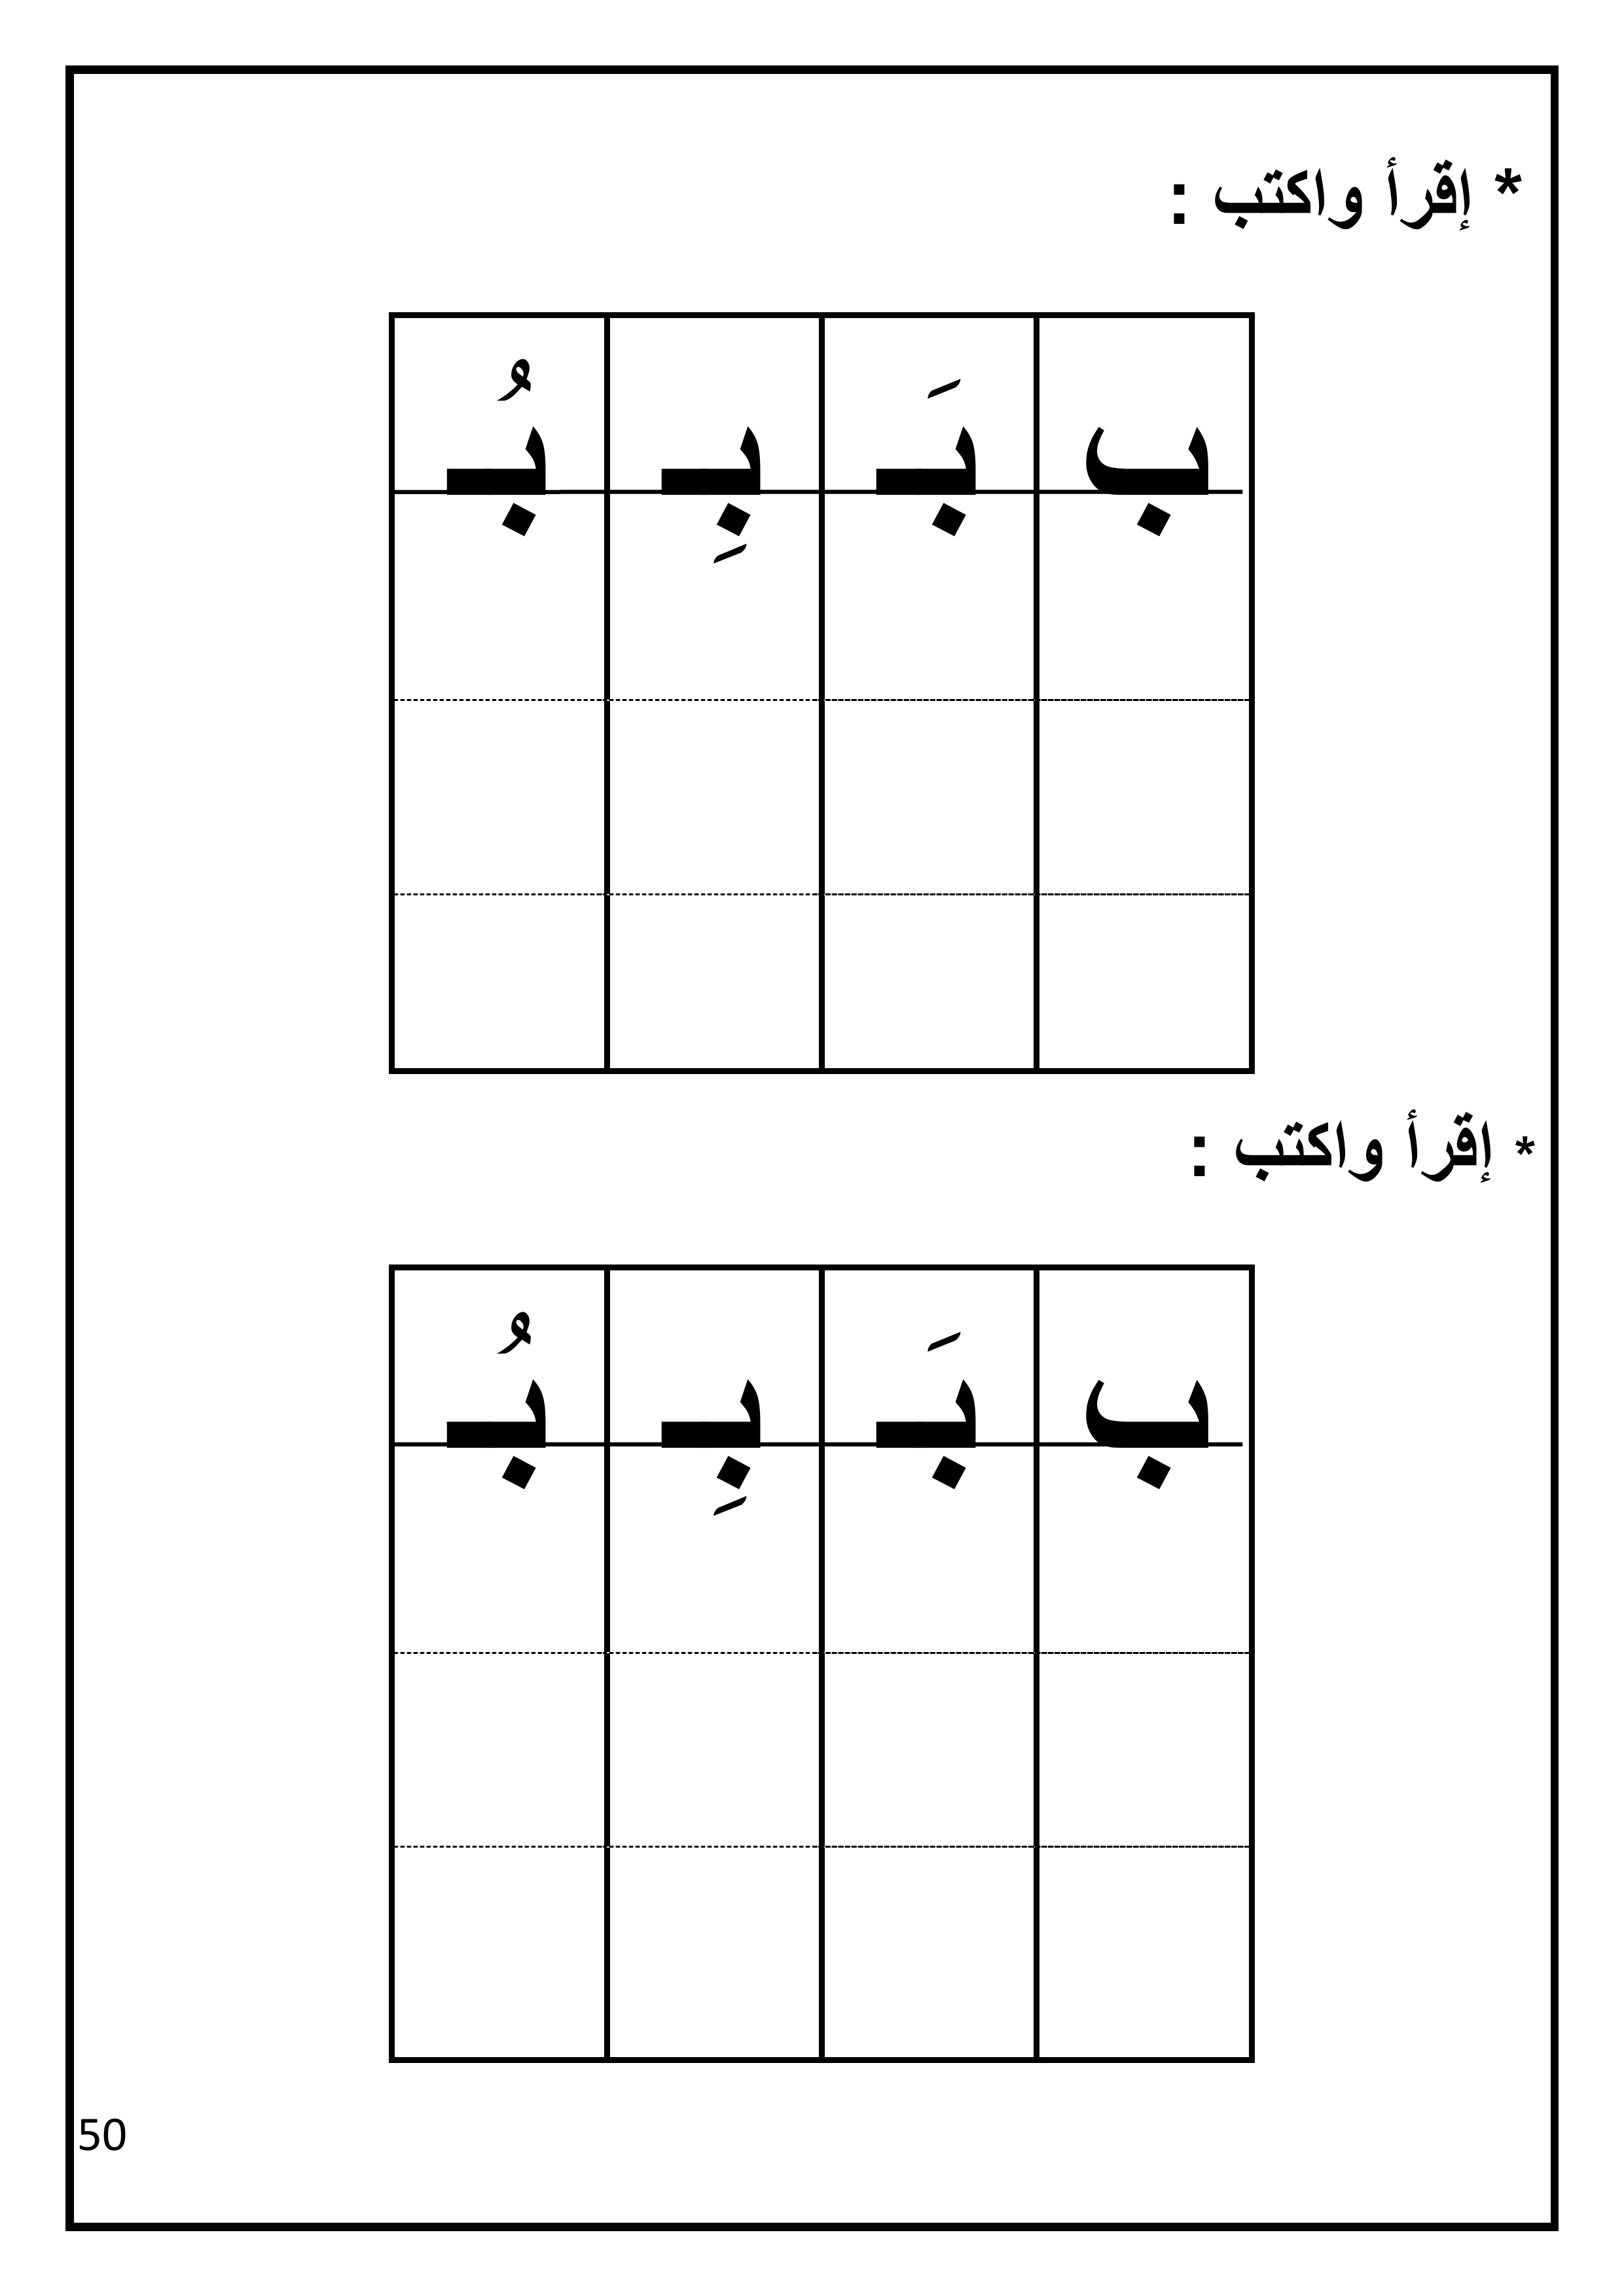 * إقرأ واكتب :
ب بَـ بِـ بُـ
* إقرأ واكتب :
ب بَـ بِـ بُـ
50